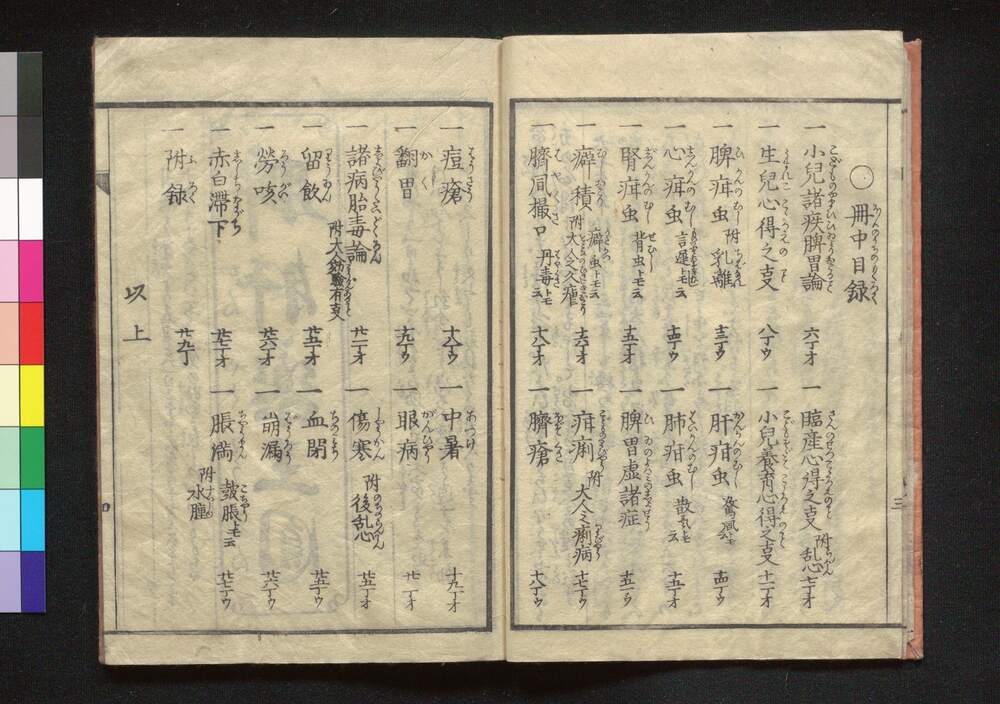 ○冊中目録
一 小兒諸疾脾胃論 六丁オ
一 臨産心得之支 附乱心 七丁オ
一 生兒心得之支 八丁ウ
一 小兒養育心得之支 十一丁オ
一 脾疳虫 附乳離 十三丁ウ
一 肝疳虫 驚風トモ云 十四丁ウ
一 心疳虫 言遲トモ云 十四丁ウ
一 肺疳虫 トモ云 十五丁オ
一 腎疳虫 背虫トモ云 十五丁オ
一 脾胃虚諸症 十五丁ウ
一 癖積 癖虫トモ云 附大人之久瘧 十六丁オ
一 疳痢 附大人之痢病 十七丁ウ
一 臍風撮口 丹毒トモ云 十八丁オ
一 臍瘡 十八丁ウ
一 痘瘡 十八丁ウ
一 中暑 十九丁オ
一 翻胃 十九丁ウ
一 眼病 廿一丁オ
一 諸病胎毒論 附大人 有支 廿一丁オ
一 傷寒 附後乱心 廿五丁オ
一 留飲 廿五丁オ
一 血閉 廿五丁ウ
一 勞咳 廿六丁オ
一 崩漏 廿六丁ウ
一 赤白滞下 廿七丁オ
一 脹満 鼓脹トモ云 附水腫 廿七丁ウ
一 附録 廿九丁
以上
三